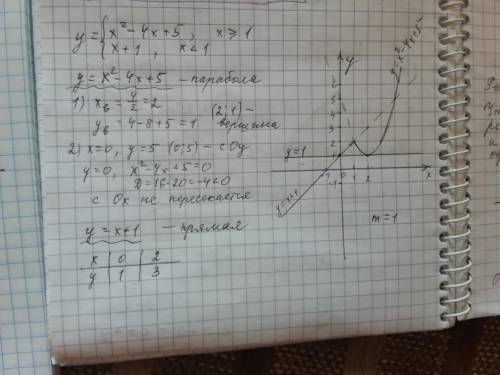 y = { x² − 4x + 5, x ⩾ 1
x + 1, x < 1
y = x² − 4x + 5 – парабола
1) x_в = 4/2 = 2
y_в = 4 − 8 + 5 = 1 (2; 1) – вершина
2) x = 0, y = 5 (0; 5) – с Oy
y = 0, x² − 4x + 5 = 0
D = 16 − 20 = −4 < 0
с Ox не пересекается
y = x + 1 – прямая
x | 0 | 2
y | 1 | 3
y
y = x² − 4x + 5
3
2
1
y = 1
-1
0
1
2
x
-1
y = x + 1
m = 1